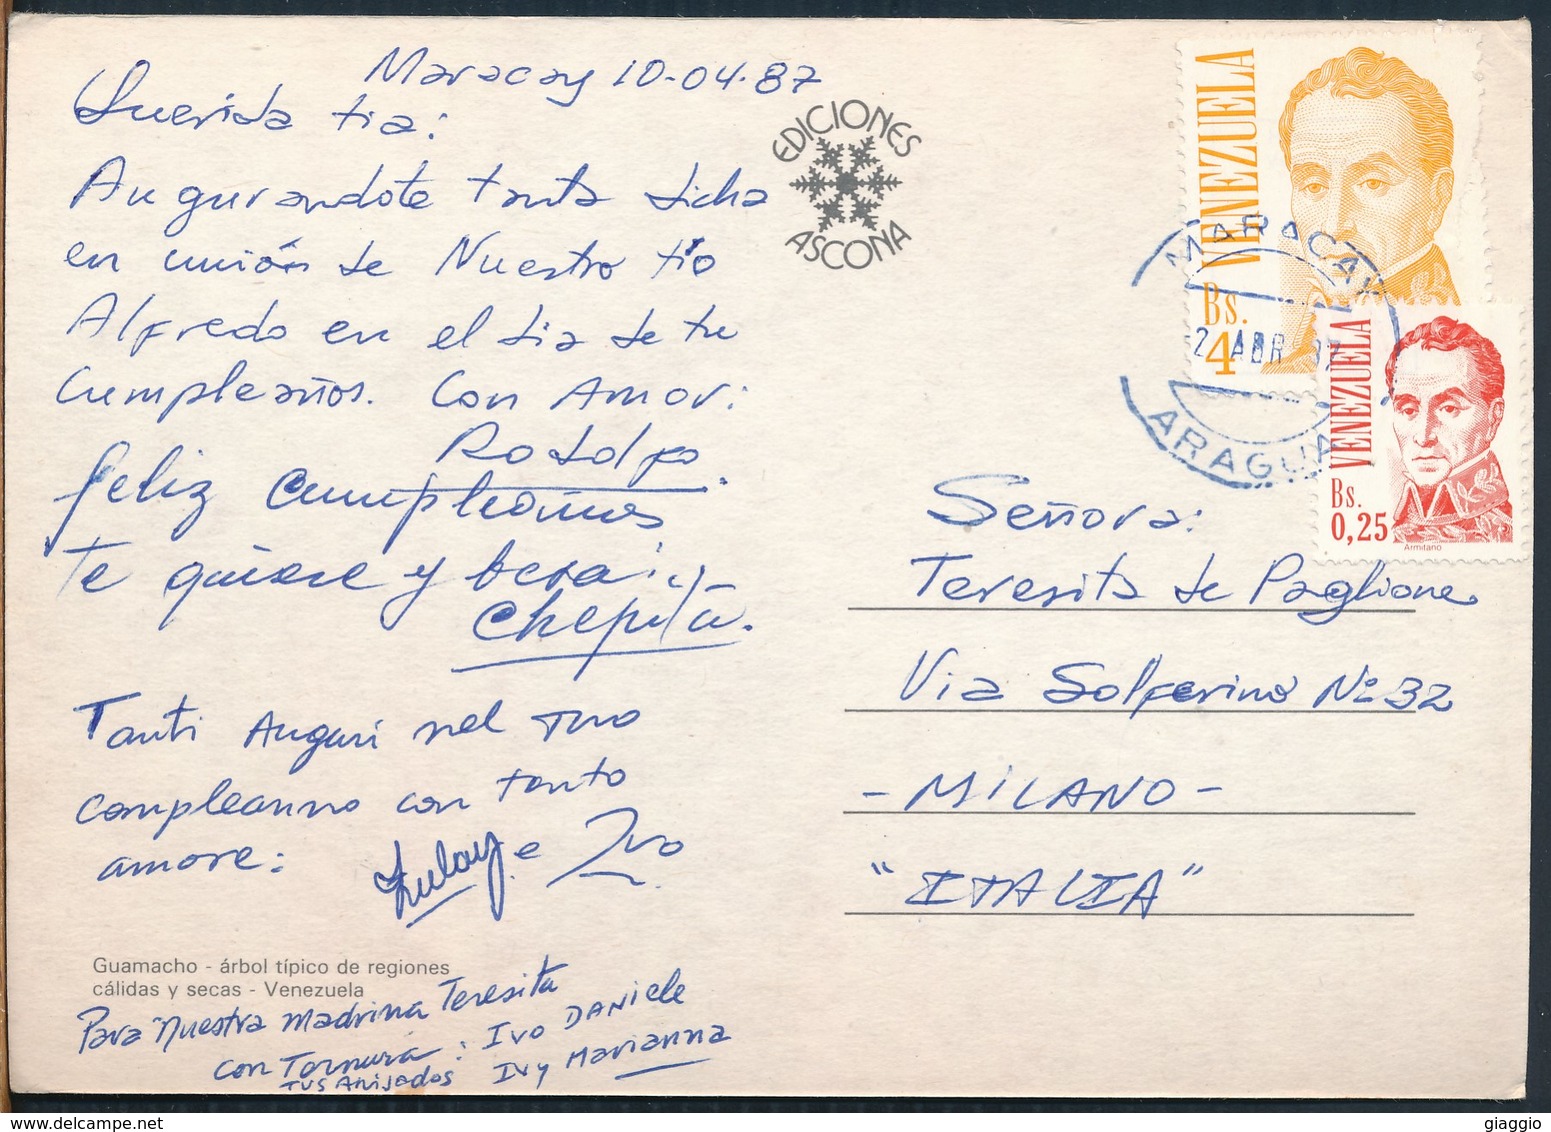 Maracay 10-04-87
Querida tia:
Augurandote tanta dicha
en unión de Nuestro tío
Alfredo en el dia de tu
Cumpleaños. Con Amor:
Rodolfo.
feliz cumpleaños
te quiere y besa:
Chepita.
Tanti Auguri nel tuo
compleanno con tanto
amore: Zulay e Ivo
Guamacho - árbol típico de regiones
cálidas y secas - Venezuela
Para nuestra madrina Teresita
con Ternura: Ivo DANiele
TUS AhijAdos Ivy Marianna
EDICIONES
ASCONA
VENEZUELA
Bs.
4
VENEZUELA
Bs.
0,25
Armitano
MARACAY
ABR
ARAGUA
Señora:
Teresita de Paglione
Via Solferino No 32
- MILANO -
"ITALIA"
giaggio